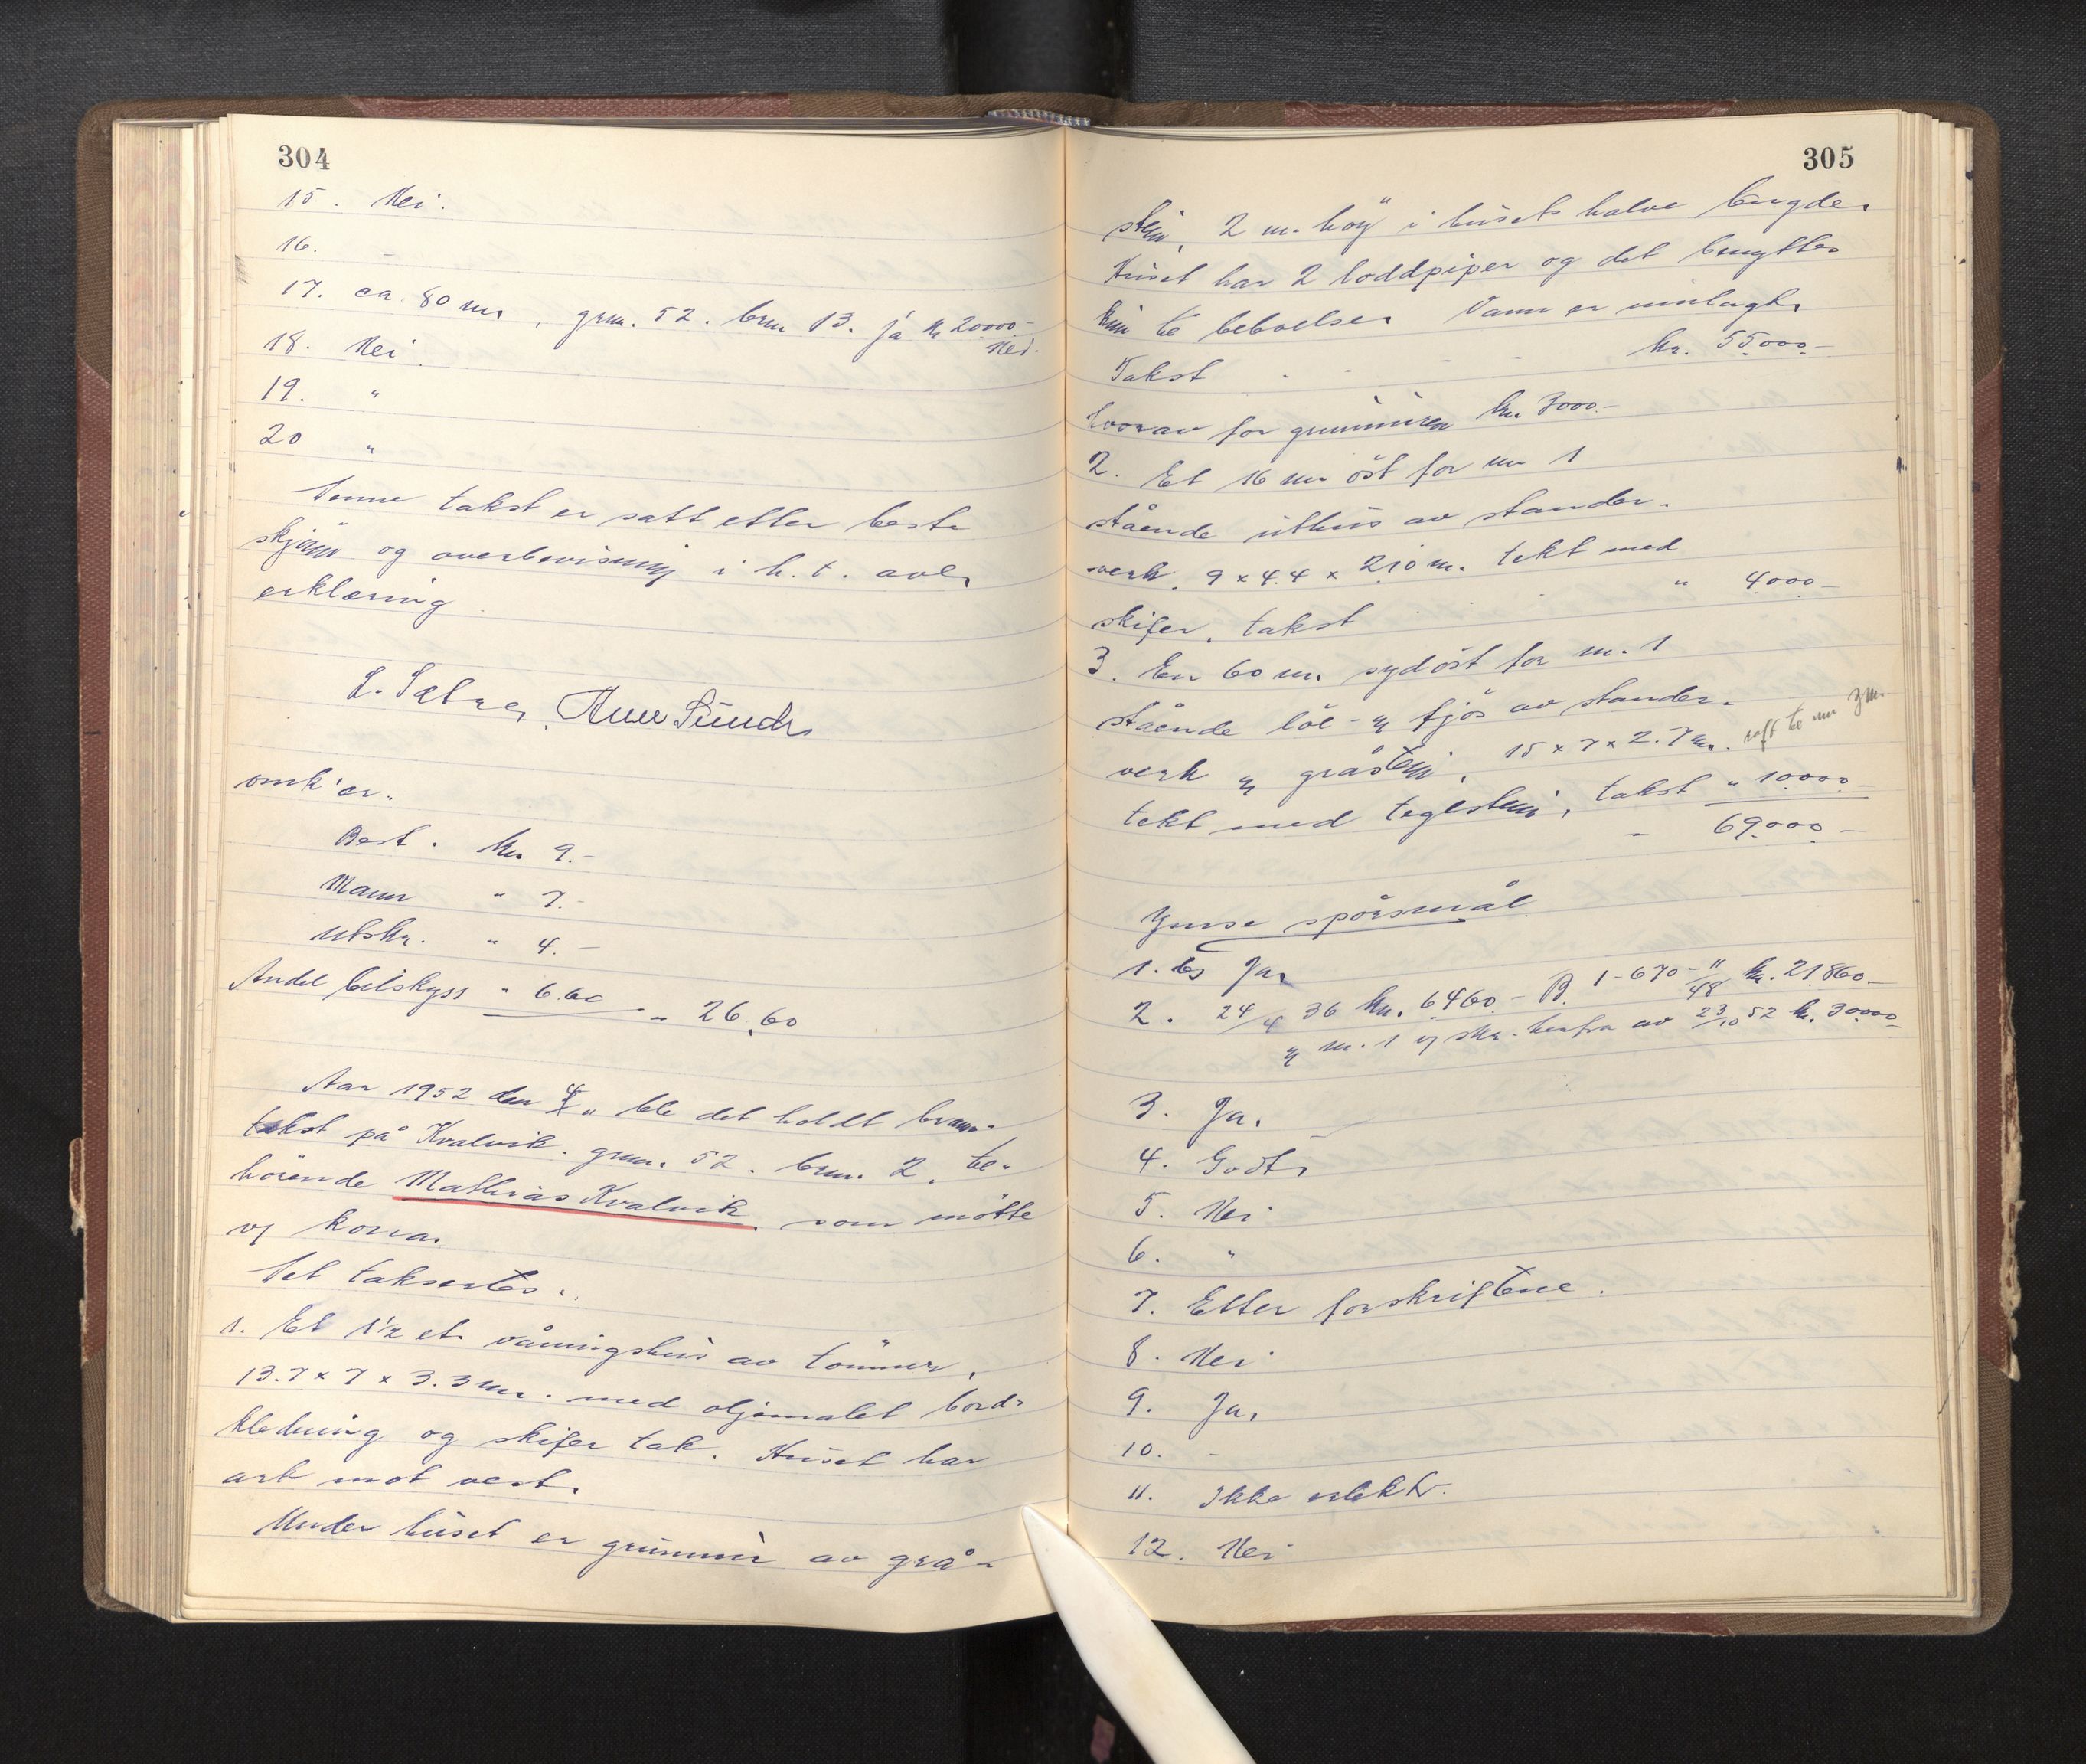 304
15. Nei.
16. -
17. ca. 80 m, grnr. 52. brn 13. ja kr 20000-
Nei.
18. Nei.
19. "
20 "
Denne takst er satt etter beste
skjönn og overbevisning i h.t. avl.
erklæring.
L. Sætre,
omk'er.
Best. kr 9.-
Mann " 7.-
Utskr. " 4.-
Andel bilskyss " 6.60 - " 26.60
Aar 1952 den 4/ " ble det holdt brann-
takst på Kvalvik. grnr. 52. brnr. 2. til-
hörende Mathias Kvalvik, som mötte
og kona.
Det taksertes:
1. Et 1½ et. våningshus av tömmer,
13.7 x 7 x 3.3 m. med oljemalet bord-
kledning og skifer tak. Huset har
ark mot vest.
Under huset er grunnmur av grå-
305
stein, 2 m. höy i husets halve lengde.
Huset har 2 loddpiper og det benyttes
kun til beboelse. Vann er innlagt.
Takst - - - - kr. 55.000.-
hvorav for grunnmuren kr 3000.-
2. Et 16 m öst for nr 1
stående uthus av stander-
verk. 9 x 4.4 x 2.10 m. tekt med
skifer, takst " 4000-
3. En 60 m. sydöst for nr. 1
stående löe- og fjös av stander-
verk og gråstein, 15 x 7 x 2.7 m.
tekt med teglstein, takst " 10000-
- 69.000-
Ymse spörsmål.
1. Ja,
2. 24/4 36 kr. 6460- B. 1-670- 11/48 kr. 21.860-
og nr. 1 og skr. herfra av 23/10 52 kr. 30000-
3. Ja.
4. Godt,
5. Nei
6. "
7. Etter forskriftene.
8. Nei
9. Ja,
10. -
11. Ikke elektr.
12. Nei